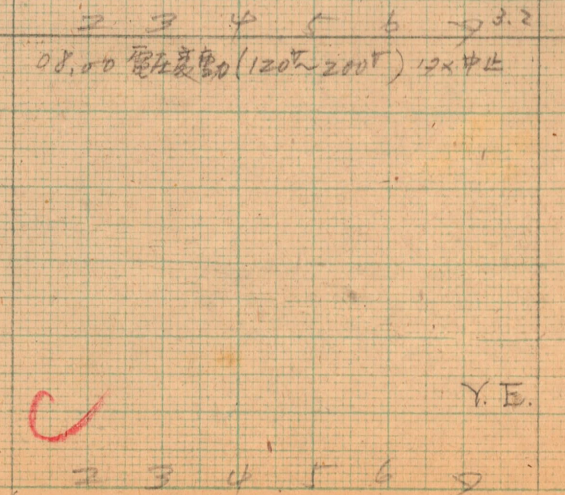 2 3 4 5 6 7 3.2
08,00 電圧変動(120V~200V) ノタメ中止
Y. E.
2 3 4 5 6 7